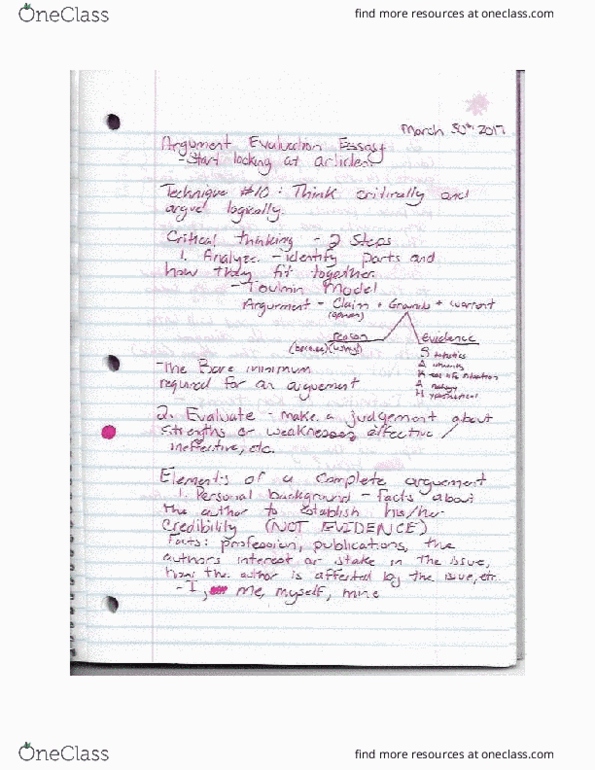 OneClass
find more resources at oneclass.com
March 30th 2017
Argument Evaluation Essay
- Start looking at articles
Technique #10 : Think critically and
argue logically.
Critical thinking - 2 Steps
1. Analyze. - identify parts and
how they fit together.
- Toulmin Model
Argurment - Claim + Grounds + warrent
(opinion)
reason evidence
(because)
S tatistics
A
R eal life situation
A
H ypothetical
- The Bare minimum
required for an arguement
2. Evaluate - make a judgement about
strengths or weaknesses effective /
ineffective, etc.
Elements of a complete arguement
1. Personal background - facts about
the author to establish his/her
Credibility (NOT EVIDENCE)
Facts: profession, publications, the
authors interest or stake in the issue,
how the author is affected by the issue, etc.
- I, me, myself, mine
OneClass
find more resources at oneclass.com